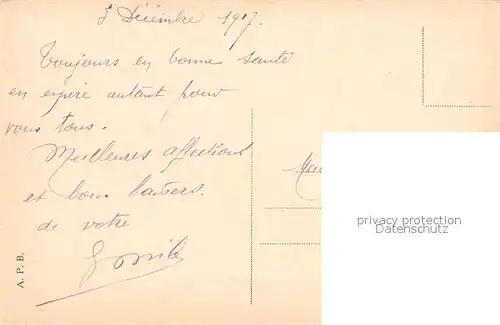 3 Décembre 1917.
Toujours en bonne santé
en espère autant pour
vous tous.
Meilleures affections
et bons baisers.
de votre
A. P. B.
privacy protection
Datenschutz